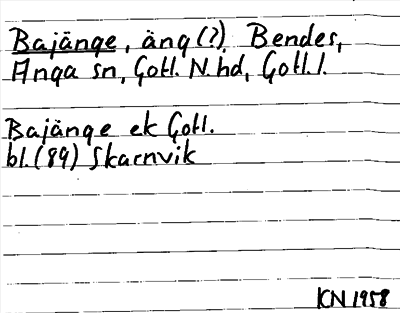 Bajänge, äng (?) Bendes,
Anga sn, Gotl. N. hd, Gotl. l.
Bajänge ek Gotl.
bl. (89) Skarnvik
KN 1958